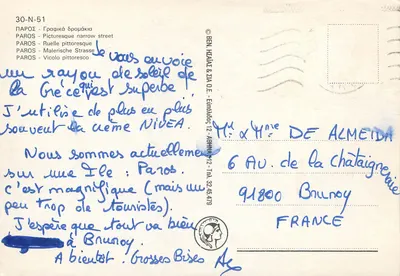 30-N-51
ΠΑΡΟΣ - Γραφικό δρομάκι
PAROS - Picturesque narrow street
PAROS - Ruelle pittoresque
PAROS - Malerische Strasse
PAROS - Vicolo pittoresco
Je vous envoie
un rayon de soleil de
la Grèce c'est superbe.
J'utilise de plus en plus
souvent la crème NIVEA.
Nous sommes actuellement
sur une Ile : Paros.
c'est magnifique (mais un
peu trop de touristes).
J'espère que tout va bien
à Brunoy.
A bientot. Grosses Bises
© ΒΕΝ. ΚΩΛΗΣ & ΣΙΑ Ο.Ε.
Mr & Mme DE ALMEIDA
6 AU. de la Châtaigneraie
91800 Brunoy
FRANCE